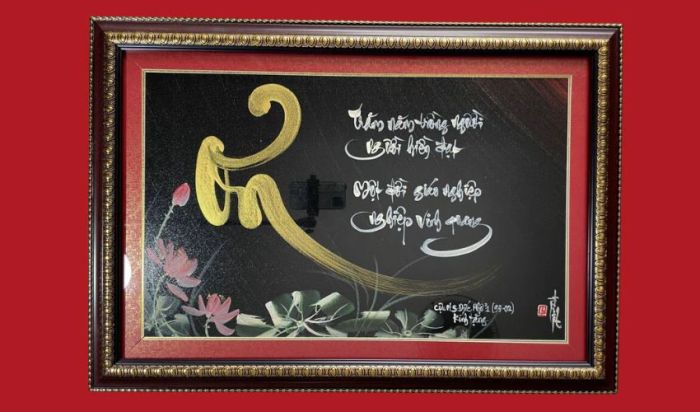 Trăm năm trồng người
người hiển đạt
Một đời giáo nghiệp
nghiệp vinh quang
Cựu H/S Đốc (99-02)
Kính tặng